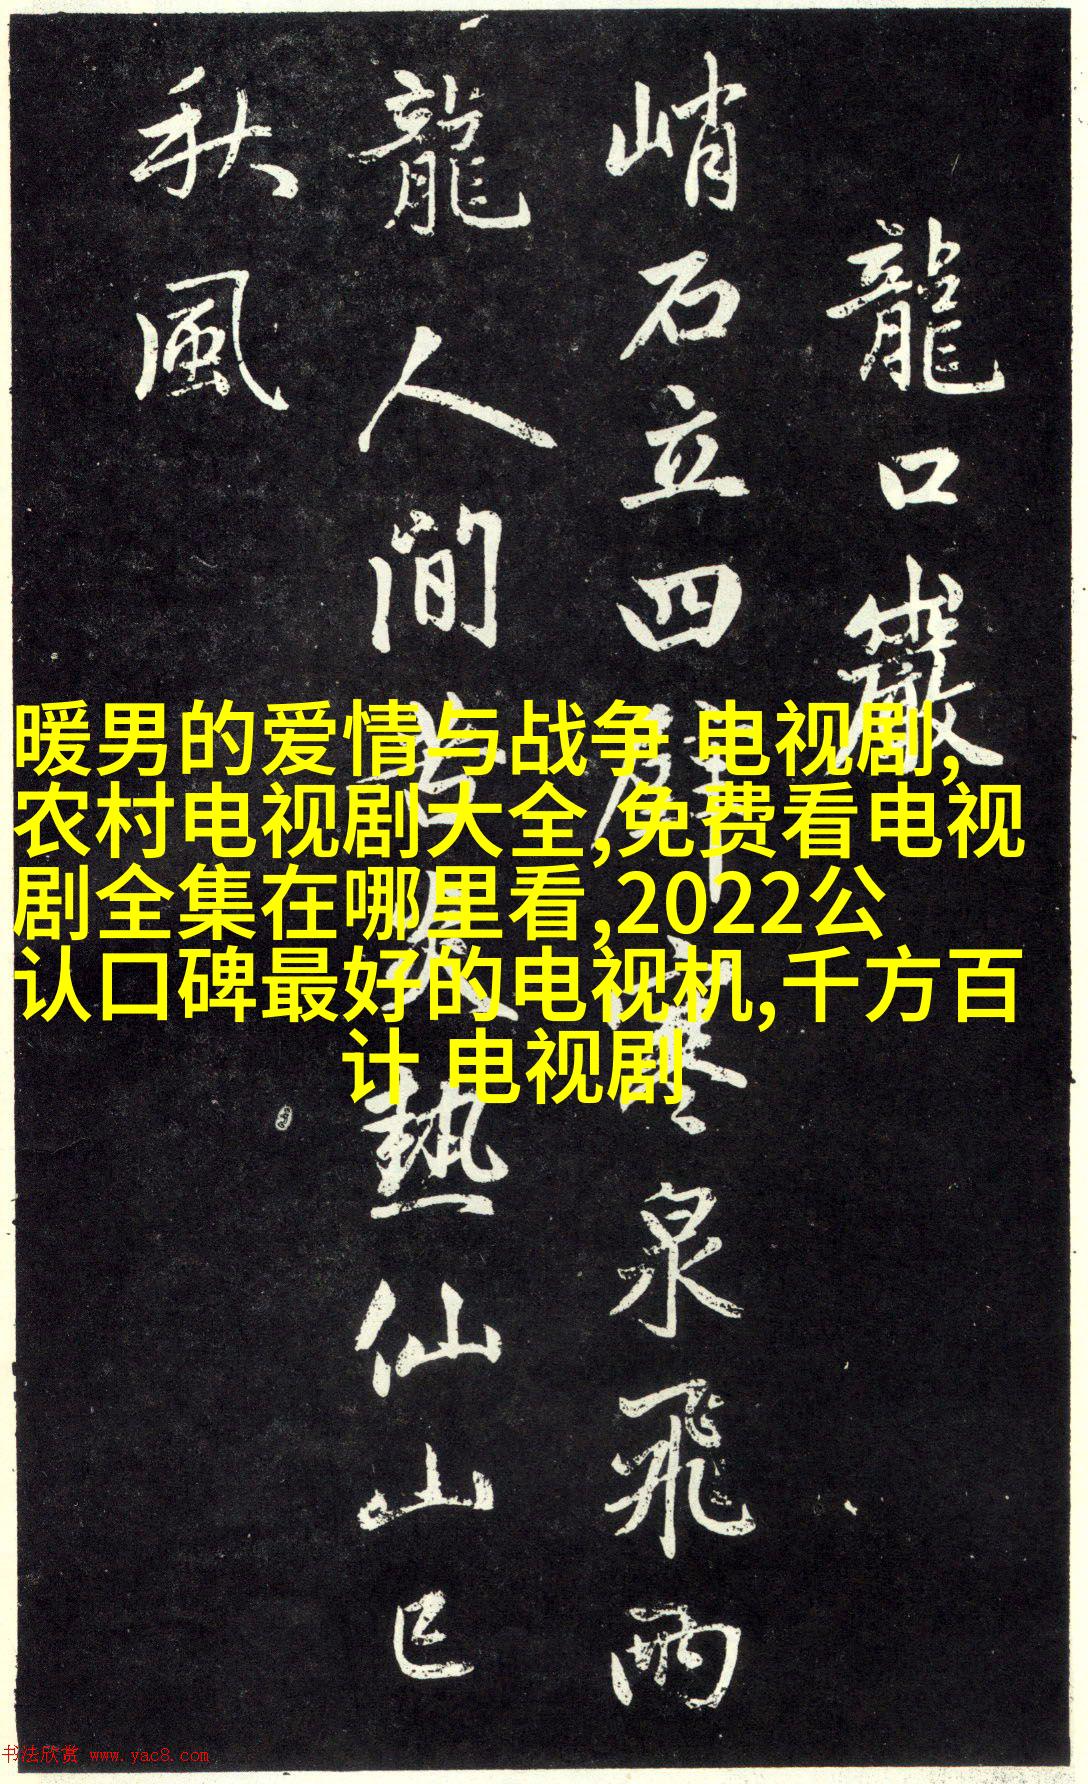 龍口巖
峭石立四壁寒泉飛兩
龍人間苦炎熱仙山已
秋風
暖男的爱情与战争 电视剧,
农村电视剧大全,免费看电视
剧全集在哪里看,2022公
认口碑最好的电视机,千方百
计 电视剧
书法欣赏 www.yac8.com